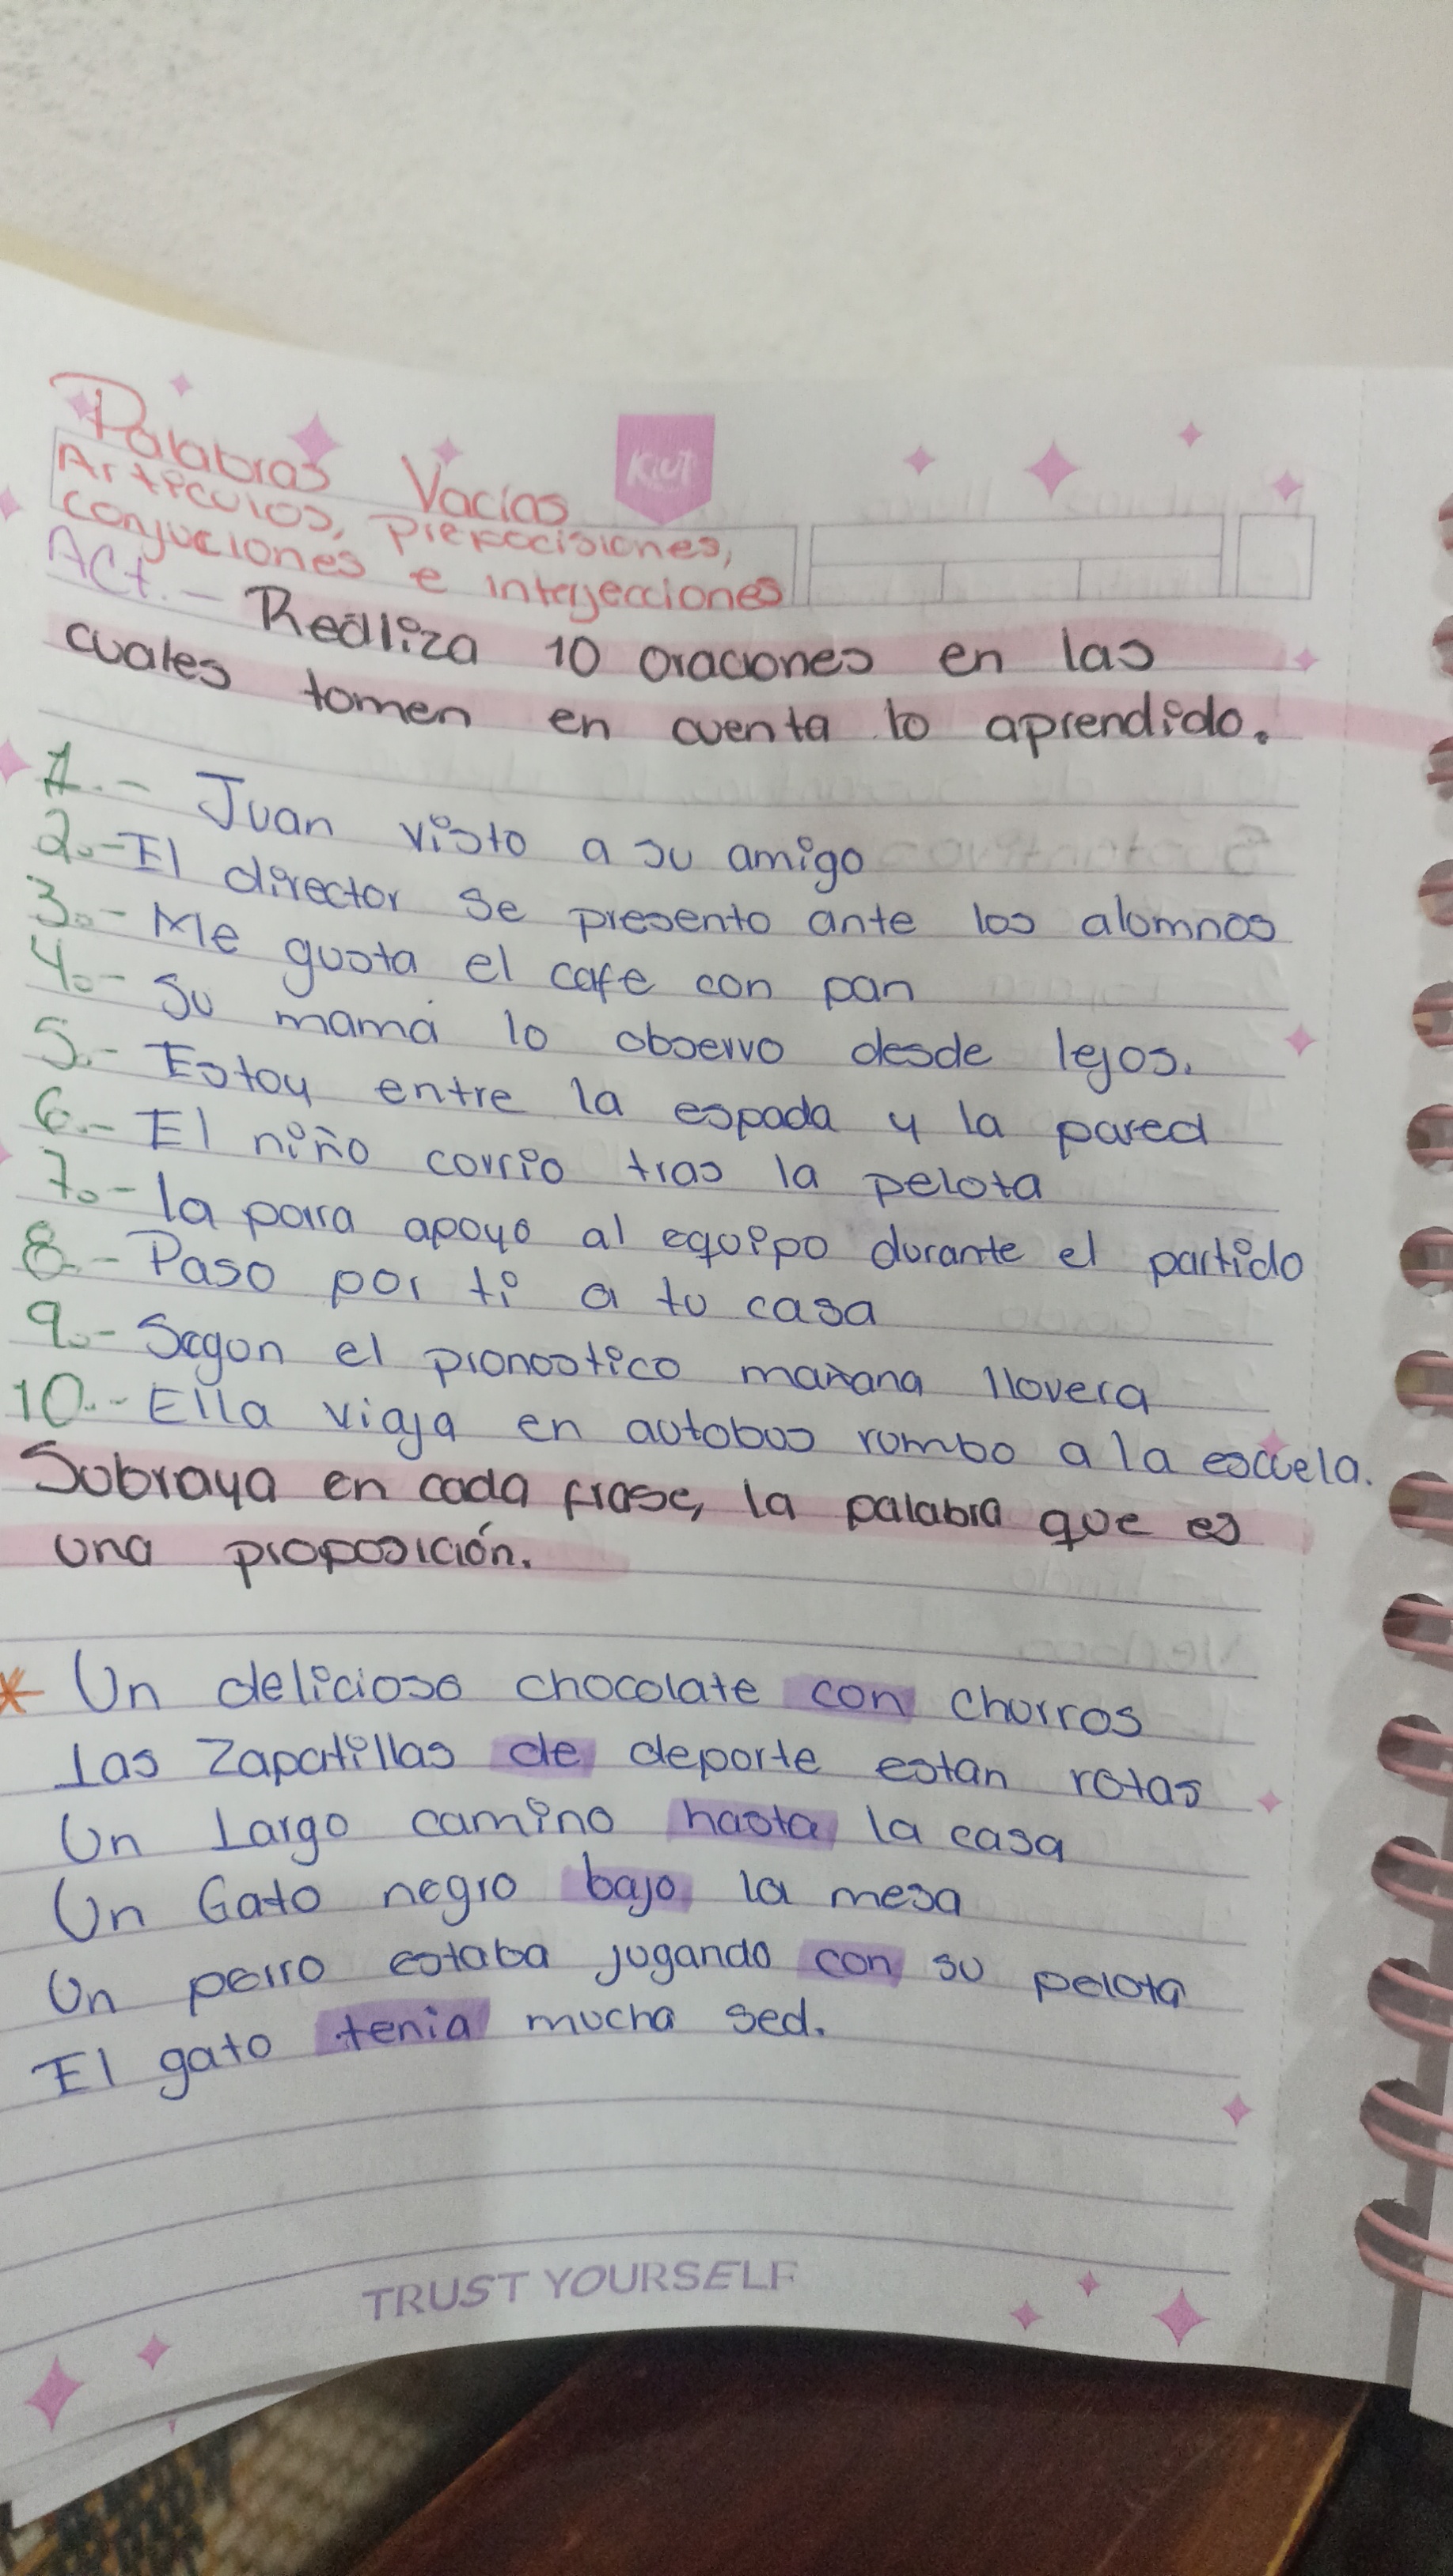 Palabras Vacías
KIUT
Artículos, prepocisiones,
conjuciones e interjecciones
Act.- Realiza 10 oraciones en las
cuales tomen en cuenta lo aprendido.
1.- Juan visto a su amigo
2.- El director se presento ante los alumnos
3.- Me gusta el cafe con pan
4.- Su mamá lo observo desde lejos.
5.- Estoy entre la espada y la pared
6.- El niño corrio tras la pelota
7.- la porra apoyo al equipo durante el partido
8.- Paso por ti a tu casa
9.- Segun el pronostico mañana llovera
10.- Ella viaja en autobus rumbo a la escuela.
Subraya en cada frase, la palabra que es
una proposición.
* Un delicioso chocolate con churros
Las zapatillas de deporte estan rotas
Un Largo camino hasta la casa
Un Gato negro bajo la mesa
Un perro estaba jugando con su pelota
El gato tenia mucha sed.
TRUST YOURSELF